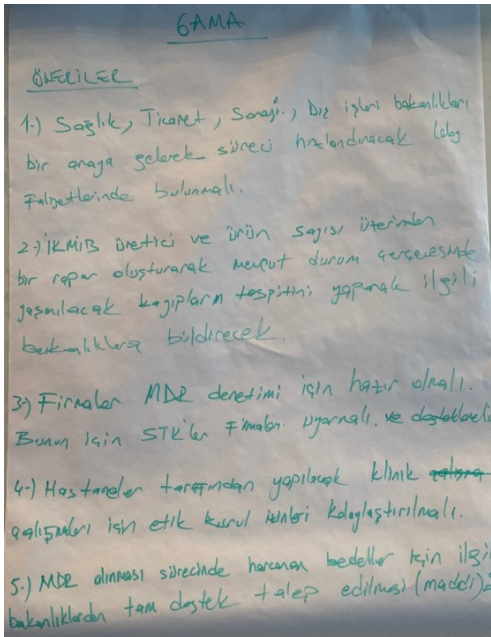 GAMA
ÖNERİLER
1-) Sağlık, Ticaret, Sanayi, Dış işleri bakanlıkları
bir araya gelerek süreci hızlandıracak loby
Faliyetlerinde bulunmalı.
2-) İKMİB üretici ve ürün sayısı üzerinden
bir rapor oluşturarak mevcut durum çerçevesinde
yaşanılacak kayıpların tespitini yaparak ilgili
bakanlıklara bildirecek.
3-) Firmalar MDR denetimi için hazır olmalı.
Bunun için STK'ler Firmaları uyarmalı. ve desteklemeli
4-) Hastaneler tarafından yapılacak klinik
çalışmaları için etik kurul izinleri kolaylaştırılmalı.
5-) MDR alınması sürecinde harcanan bedeller için ilgi
bakanlıklardan tam destek talep edilmesi (maddi)